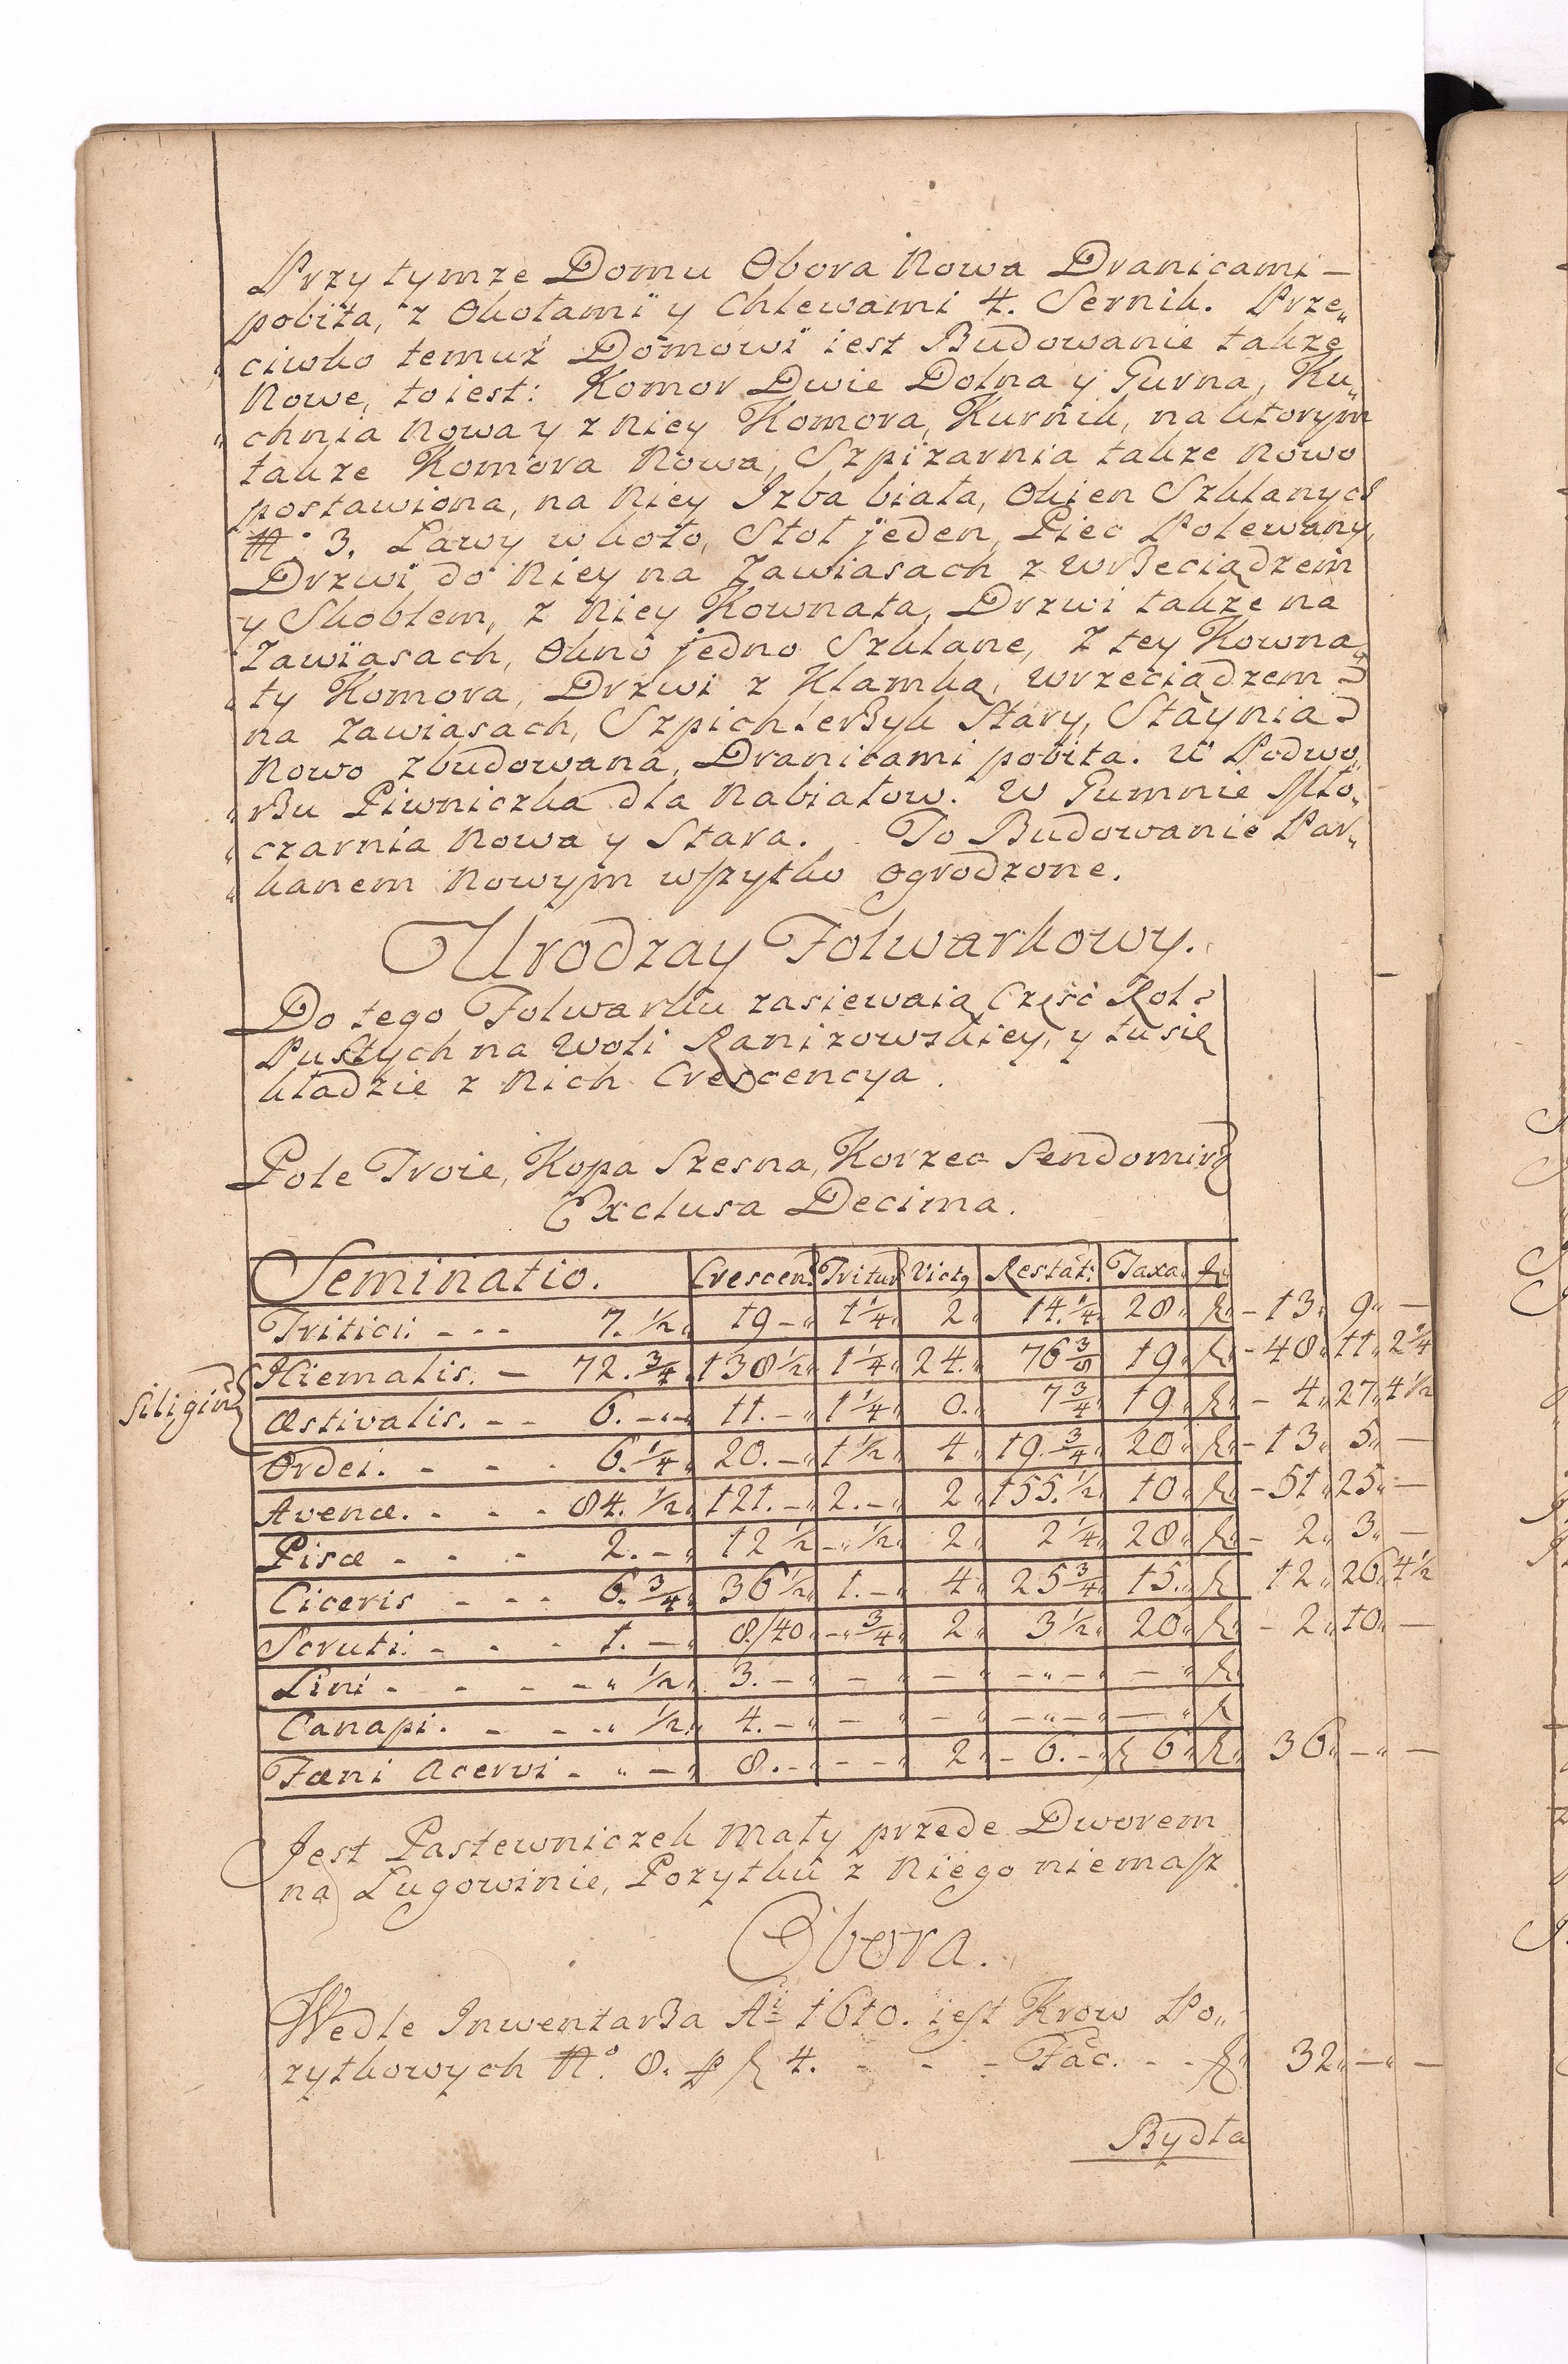 Przy tymże Domu Obora Nowa Dranicami –
pobita, z Okołami y Chlewami 4. Sernik. Prze„
„ciwko temuż Domowi iest Budowanie także
Nowe, toiest: Komor Dwie Dolna y Gurna, Ku„
„chnia Nowa y z Niey Komora, Kurnik, na ktorym
także Komora Nowa, Szpizarnia także Nowo
postawiona, na Niey Jzba biała, Okien Szklanych
No 3. Ławy wkoło, Stoł jeden, Piec Polewany,
Drzwi do Niey na Zawiasach z Wrzeciądzem
y Skoblem, z Niey Kownata, Drzwi także na
Zawiasach, Okno jedno Szklane, Z tey Kowna„
„ty Komora, Drzwi z Klamką, wrzeciądzem
na Zawiasach, Szpichlerzyk Stary, Staynia
Nowo zbudowana, Dranicami pobita. W Podwo„
„rzu Piwniczka dla Nabiałow. W Gumnie Mło„
„czarnia Nowa y Stara. To Budowanie Par„
„kanem Nowym wszytko ogrodzone.
Urodzay Folwarkowy.
Do tego Folwarku zasiewaią Częsć Rol
Pustych na Woli Ranizowskiey, y tu się
kładzie z Nich Crescencya.
Pole Troie, Kopa Szesna, Korzec Sendomir:
Exclusa Decima.
Seminatio. Crescen: Tritur: Victq Restat: Taxa
Tritici: - - - 7. ½ 19 – 1¼ 2 14. ¼ 28 f – 13 9 —
Siligin: Hiemalis. – 72. ¾ 138½ 1¼ 24. 76 3/8 19 f – 48 11 2¼
Æstivalis. - - 6. – 11. – 1¼ 0. 7¾ 19 f – 4 27 4½
Ordei. - - - 6. ¼ 20. – 1½ 4 19. ¾ 20 f – 13 5 —
Avenæ. - - - 84. ½ 121. – 2. – 2 155. ½ 10 f – 51 25 —
Pisæ - - - 2. – 12½ – ½ 2 2¼ 28 f – 2 3 —
Ciceris - - - 6. ¾ 36½ 1. – 4 25¾ 15. f 12 26 4½
Scruti: - - - 1. – 8./40 – ¾ 2 3½ 20 f – 2 10 —
Lini - - - - ½ 3. – – – – – – f
Canapi. - - - ½ 4. – – – – – — f
Fæni Acervi - – 8. – – – 2 – 6. – f 6 f 36 — —
Jest Pastewniczek mały przede Dworem
na Ługowinie, Pożytku z Niego niemasz
Obora.
Wedle Jnwentarza Aii 1610. iest Krow Po„
żytkowych No. 8. p f 4. - - - Fac. - - f 32 — —
Bydła